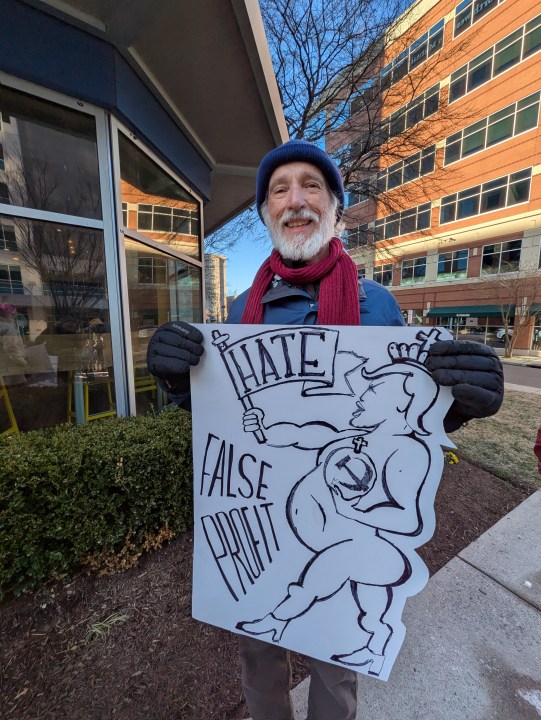 HATE
FALSE
PROFIT